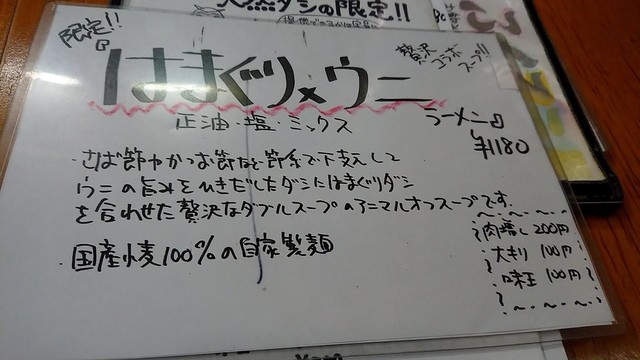 天然ダシの限定!!
限定!!
はまぐり×ウニ
贅沢
コラボ
スープ!!
正油・塩・ミックス
ラーメン
¥1180
・さば節やかつお節など節系で下支えして
ウニの旨みをひきだしたダシにはまぐりダシ
を合わせた贅沢なダブルスープのアニマルオフスープです。
・国産小麦100%の自家製麺
肉増し 200円
大判り 100円
味玉 100円